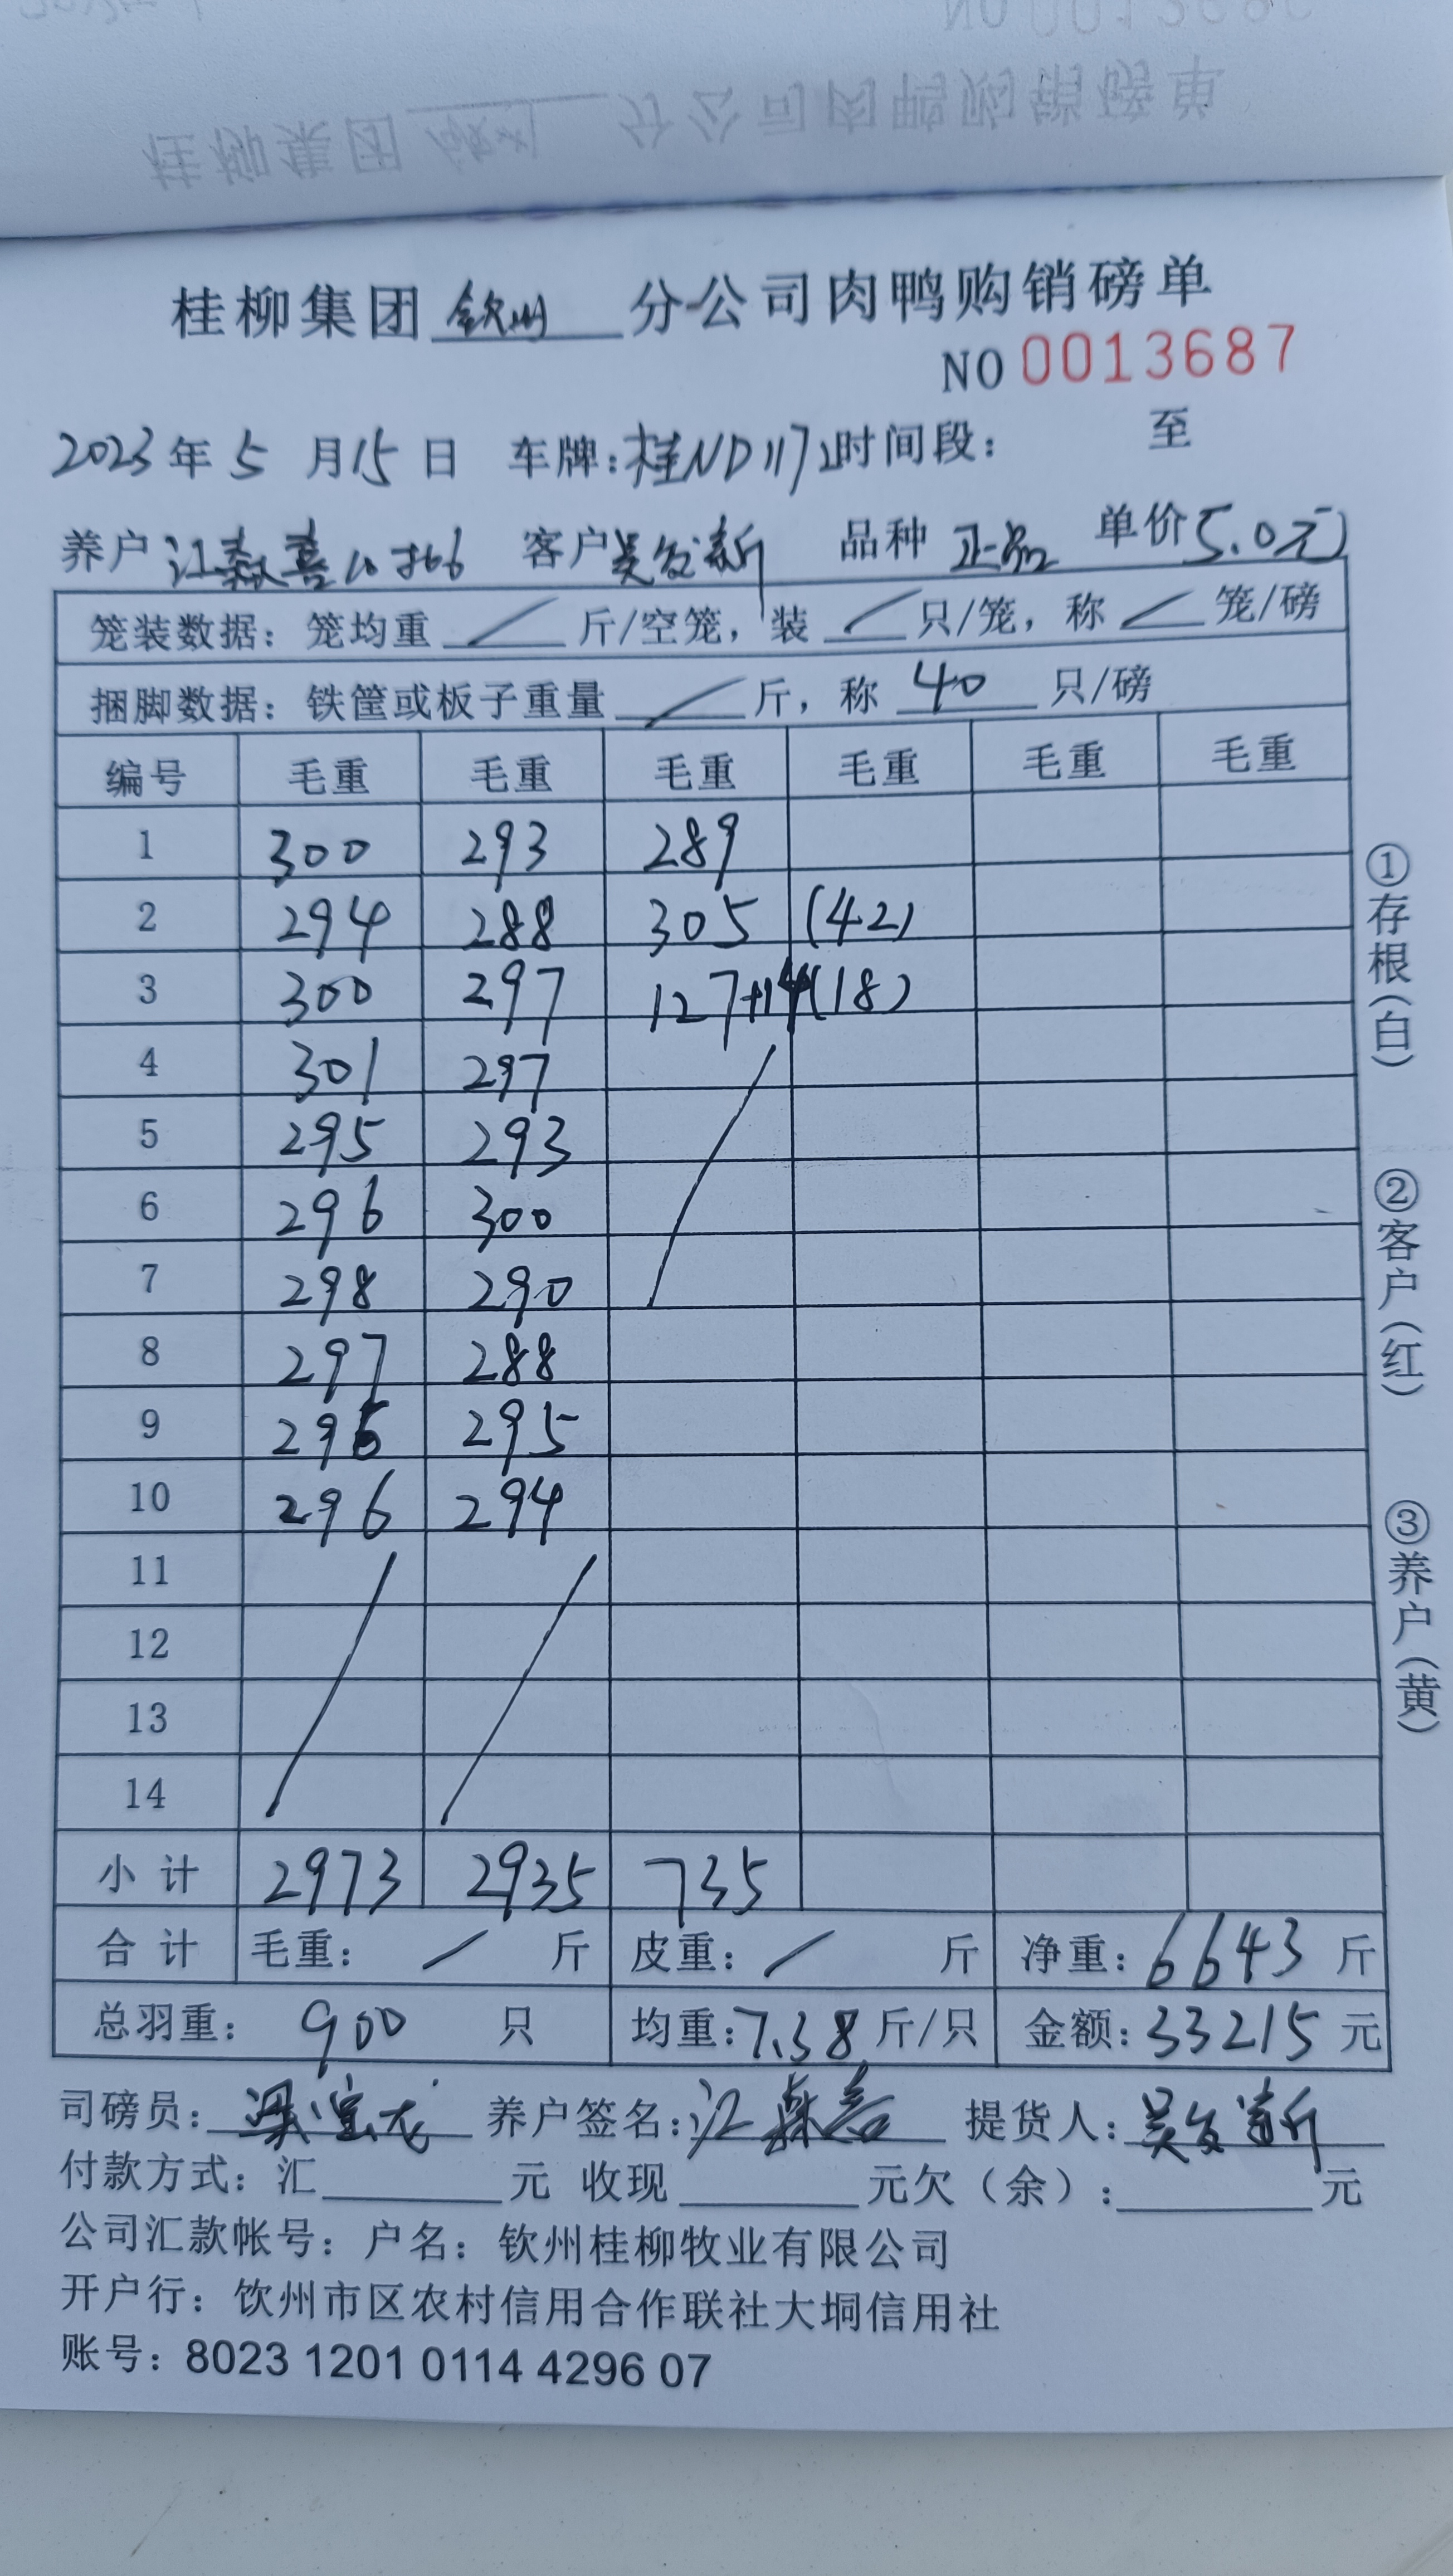 桂柳集团 钦州 分公司肉鸭购销磅单
NO 0013687
2023年5月15日 车牌:桂ND1172时间段: 至
养户 江森喜 客户 吴发新 品种 正品 单价 5.0元
笼装数据: 笼均重 / 斤/空笼, 装 / 只/笼, 称 / 笼/磅
捆脚数据: 铁筐或板子重量 / 斤, 称 40 只/磅
编号 毛重 毛重 毛重 毛重 毛重 毛重
1 300 293 289
2 294 288 305 (42)
3 300 297 127+14 (18)
4 301 297
5 295 293
6 296 300
7 298 290
8 297 288
9 296 295
10 296 294
11
12
13
14
小计 2973 2935 735
合计 毛重: / 斤 皮重: / 斤 净重: 6643 斤
总羽重: 900 只 均重: 7.38 斤/只 金额: 33215 元
司磅员: 梁宝龙 养户签名: 江森喜 提货人: 吴发新
付款方式: 汇 元 收现 元欠(余): 元
公司汇款帐号: 户名: 钦州桂柳牧业有限公司
开户行: 钦州市区农村信用合作联社大垌信用社
账号: 8023 1201 0114 4296 07
①存根(白)
②客户(红)
③养户(黄)